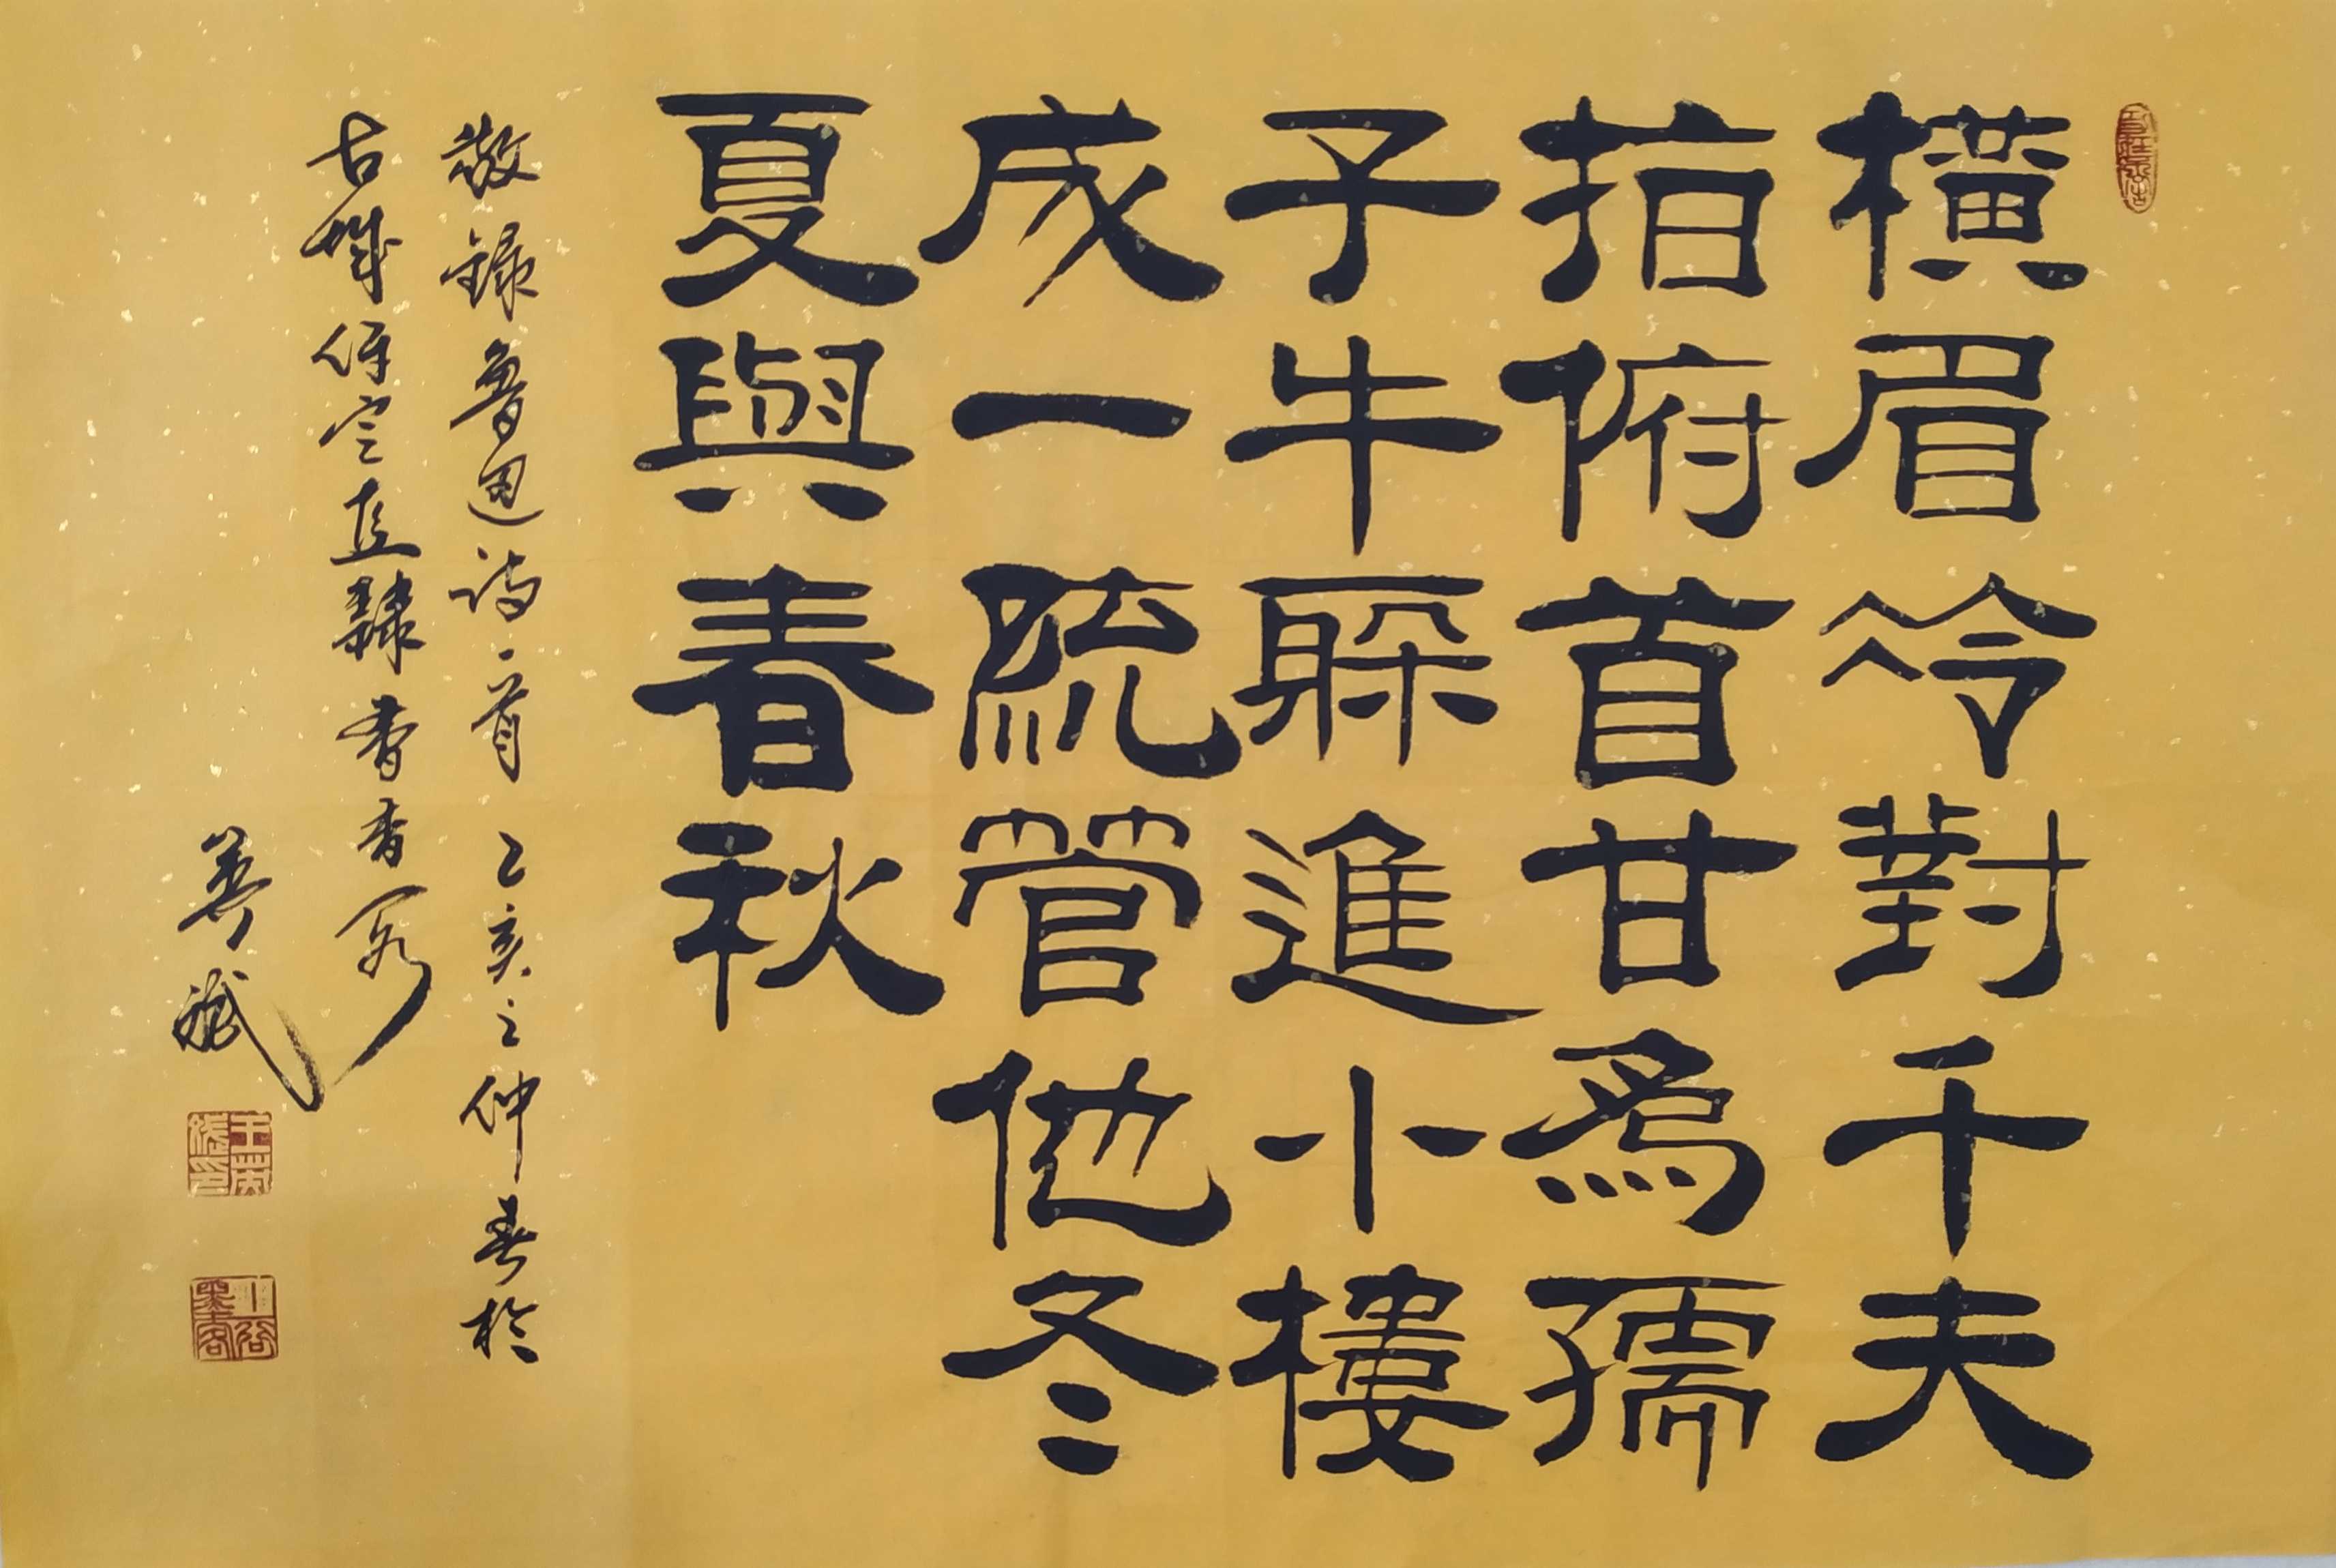 横眉冷對千夫
指俯首甘為孺
子牛躲進小樓
成一統管他冬
夏與春秋
敬録魯迅詩一首 己亥之仲春於
古城保定直隸書香